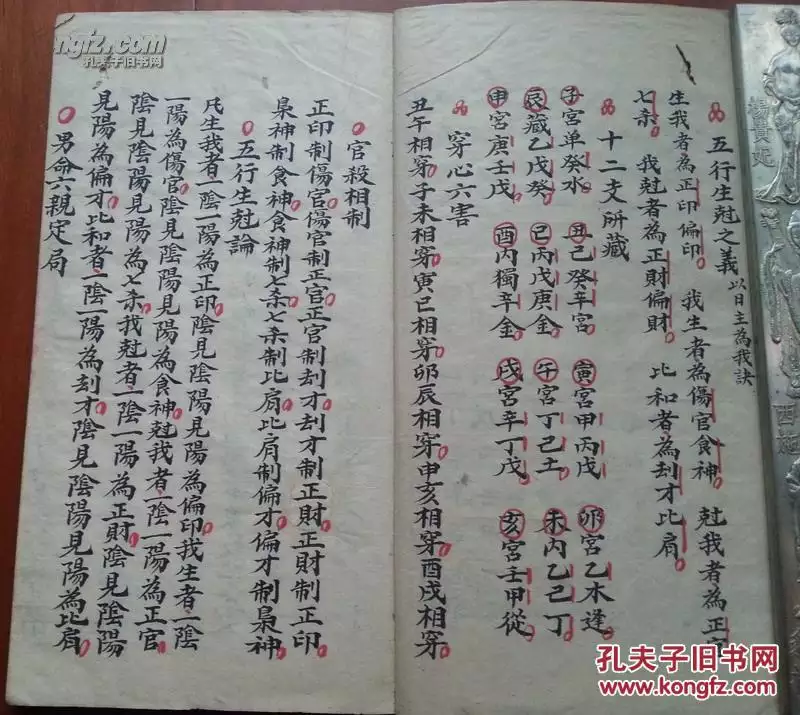 五行生尅之義 以日主為我訣
生我者為正印偏印 我生者為傷官食神 尅我者為正官
七杀 我尅者為正財偏財 比和者為刦才比肩
十二支所藏
子宮单癸水 丑己癸辛宮 寅宮甲丙戊 卯宮乙木逢
辰藏乙戊癸 巳丙戊庚金 午宮丁己土 未丙乙己丁
申宮庚壬戊 酉丙獨辛金 戌宮辛丁戊 亥宮壬甲從
穿心六害
丑午相穿子未相穿寅巳相穿卯辰相穿申亥相穿酉戌相穿
官殺相制
正印制傷官傷官制正官正官制刦才刦才制正財正財制正印
梟神制食神食神制七杀七杀制比肩比肩制偏才偏才制梟神
五行生尅論
凡生我者一陰一陽為正印陰見陰陽見陽為偏印我生者一陰
一陽為傷官陰見陰陽見陽為食神尅我者一陰一陽為正官
陰見陰陽見陽為七杀我尅者一陰一陽為正財陰見陰陽
見陽為偏才比和者一陰一陽為刦才陰見陰陽見陽為比肩
男命六親定局
楊貴妃
西施
孔夫子旧书网
kongfz.com
孔夫子旧书网
www.kongfz.com